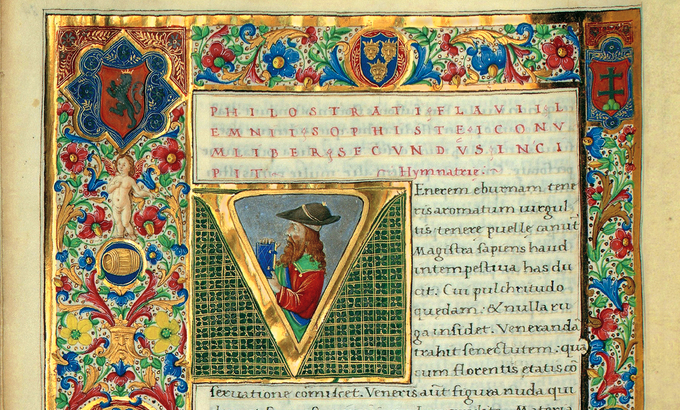 PHILOSTRATI FLAVII L
EMNII SOPHISTE ICONV
M LIBER SECVNDVS INCI
PIT Hymnatrie.
VEnerem eburnam tene
ris aromatum uirgul
tis tenere puelle canut
Magistra sapiens haud
intempestiua, has du
cit. Cui pulchritudo
quedam. & nulla ru
ga insidet. Venerandã
trahit senectutem. qua
sum florentis etatis co
seruatione comiscet. Veneris aut̃ figura nuda qui